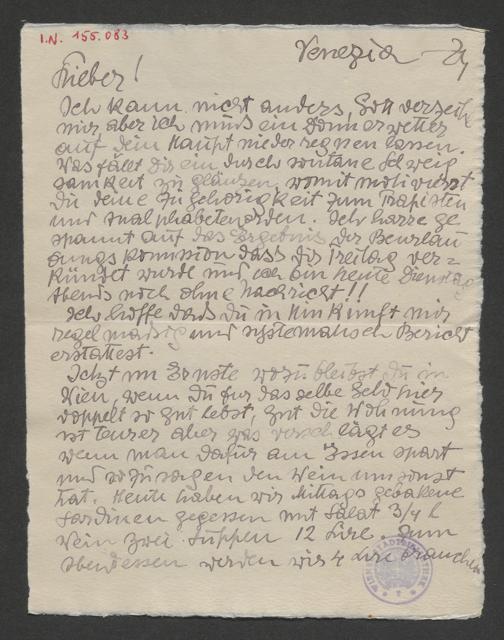 I.N. 155.083
Venezia
Lieber!
Ich kann nicht anders, Gott verzeih
mir aber ich muss ein Donnerwetter
auf dein Haupt niederregnen lassen.
Was fällt dir ein durch Schweig
samkeit zu glänzen, womit
du deine Zugehörigkeit zum Trapisten
und analphabetenorden. Ich harre ge
spannt auf das Ergebnis der Beurlau
bungskommission dass dir Freitag ver=
kündet wurde und ich bin heute Dienstag
Abends noch ohne Nachricht!!
Ich hoffe dass du in Hinkunft mir
regelmässig und systematisch Bericht
erstattest.
Jetzt im Ernste wozu bleibst du in
Wien, wenn du für das selbe Geld hier
doppelt so gut lebst, gut die Wohnung
ist teurer aber was verschlägt es
wenn man dafür am Essen spart
und sozusagen den Wein umsonst
hat. Heute haben wir Mittags gebackene
Sardinen gegessen mit Salat 3/4 l
Wein zwei Suppen 12 Lire. Zum
Abendessen werden wir 4 Lire brauchen